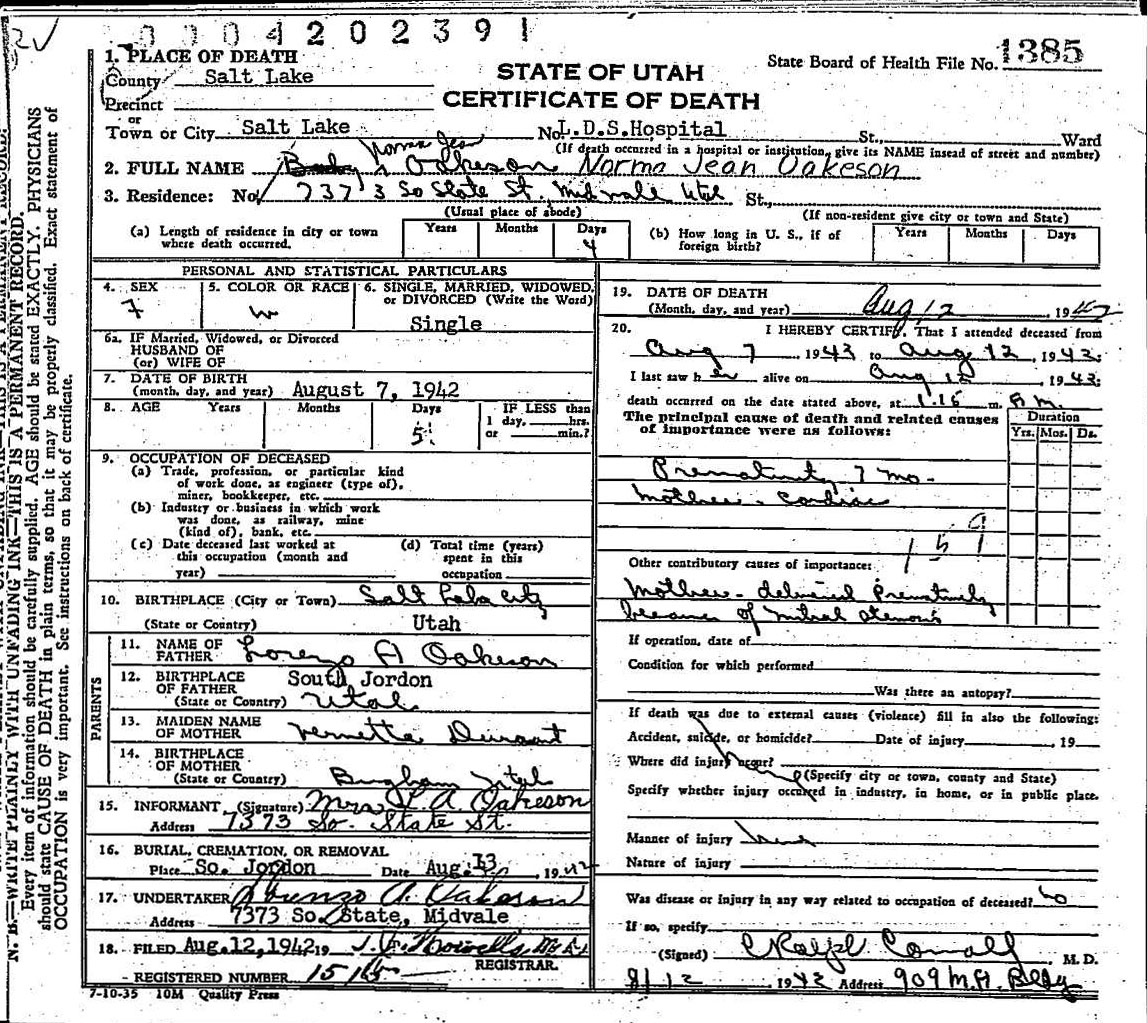 2V
0004202391
1. PLACE OF DEATH
County Salt Lake
Precinct
or
Town or City Salt Lake No. L.D.S.Hospital St., Ward
STATE OF UTAH
CERTIFICATE OF DEATH
State Board of Health File No. 1385
(If death occurred in a hospital or institution, give its NAME insead of street and number)
2. FULL NAME Baby Norma Jean Oakeson Norma Jean Oakeson
3. Residence: No. 7373 So State St. Midvale Utah St.,
(Usual place of abode) (If non-resident give city or town and State)
(a) Length of residence in city or town where death occurred. Years Months Days 4
(b) How long in U. S., if of foreign birth? Years Months Days
PERSONAL AND STATISTICAL PARTICULARS
4. SEX F
5. COLOR OR RACE W
6. SINGLE, MARRIED, WIDOWED, or DIVORCED (Write the Word) Single
6a. IF Married, Widowed, or Divorced
HUSBAND OF
(or) WIFE OF
7. DATE OF BIRTH
(month, day, and year) August 7, 1942
8. AGE Years Months Days 5 IF LESS than 1 day, hrs. or min.?
9. OCCUPATION OF DECEASED
(a) Trade, profession, or particular kind
of work done, as engineer (type of),
miner, bookkeeper, etc.
(b) Industry or business in which work
was done, as railway, mine
(kind of), bank, etc.
(c) Date deceased last worked at
this occupation (month and
year)
(d) Total time (years)
spent in this
occupation
10. BIRTHPLACE (City or Town) Salt Lake City
(State or Country) Utah
PARENTS
11. NAME OF FATHER Lorenzo A Oakeson
12. BIRTHPLACE OF FATHER South Jordon
(State or Country) Utah
13. MAIDEN NAME OF MOTHER Vernetta Durant
14. BIRTHPLACE OF MOTHER
(State or Country) Bingham Utah
15. INFORMANT (Signature) Mrs L. A. Oakeson
Address 7373 So. State St.
16. BURIAL, CREMATION, OR REMOVAL
Place So. Jordon Date Aug. 13, 1942
17. UNDERTAKER Lorenzo A. Oakeson
Address 7373 So. State, Midvale
18. FILED Aug.12,1942 19
REGISTRAR.
REGISTERED NUMBER 1515
7-10-35 10M Quality Press
19. DATE OF DEATH
(Month, day, and year) Aug 12, 1942
20. I HEREBY CERTIFY, That I attended deceased from
Aug 7, 1942 to Aug 12, 1942.
I last saw her alive on Aug 12, 1942.
death occurred on the date stated above, at 1:15 m. A.M.
The principal cause of death and related causes
of importance were as follows:
Duration
Yrs. Mos. Ds.
Prematurity 7 mo.
Mother - cardiac
159
Other contributory causes of importance:
Mother - delivered Prematurely
because of mitral stenosis
If operation, date of
Condition for which performed
Was there an autopsy?
If death was due to external causes (violence) fill in also the following:
Accident, suicide, or homicide? Date of injury , 19
Where did injury occur?
(Specify city or town, county and State)
Specify whether injury occurred in industry, in home, or in public place.
Manner of injury
Nature of injury
Was disease or injury in any way related to occupation of deceased? no
If so, specify
(Signed) M. D.
8/12, 1942 Address 909 M.A. Bldg
N. B.—WRITE PLAINLY WITH UNFADING INK—THIS IS A PERMANENT RECORD.
Every item of information should be carefully supplied. AGE should be stated EXACTLY. PHYSICIANS
should state CAUSE OF DEATH in plain terms, so that it may be properly classified. Exact statement of
OCCUPATION is very important. See instructions on back of certificate.